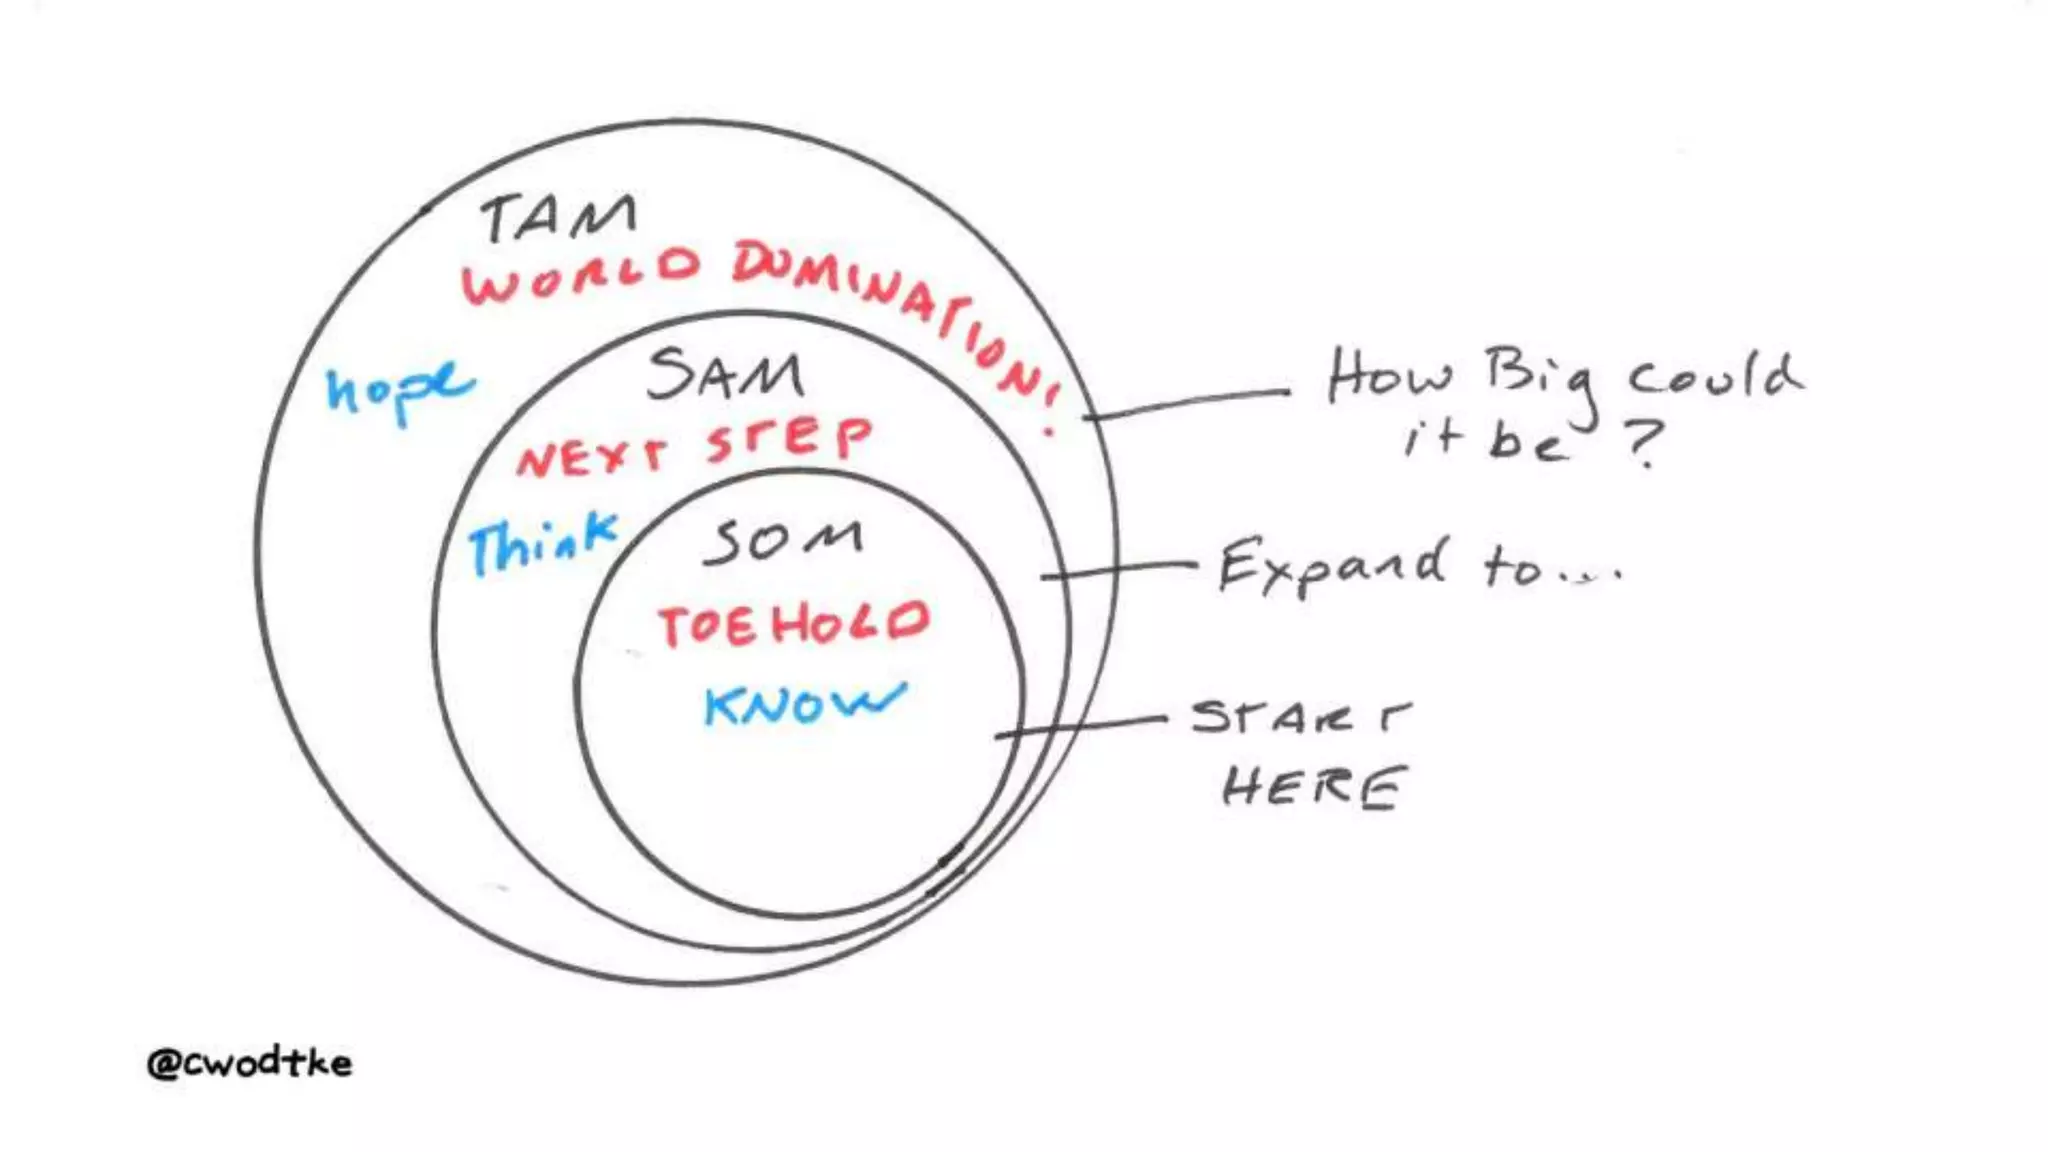 TAM
WORLD DOMINATION!
hope
SAM
NEXT STEP
Think
SOM
TOEHOLD
KNOW
How Big could
it be?
Expand to...
START
HERE
@cwodtke